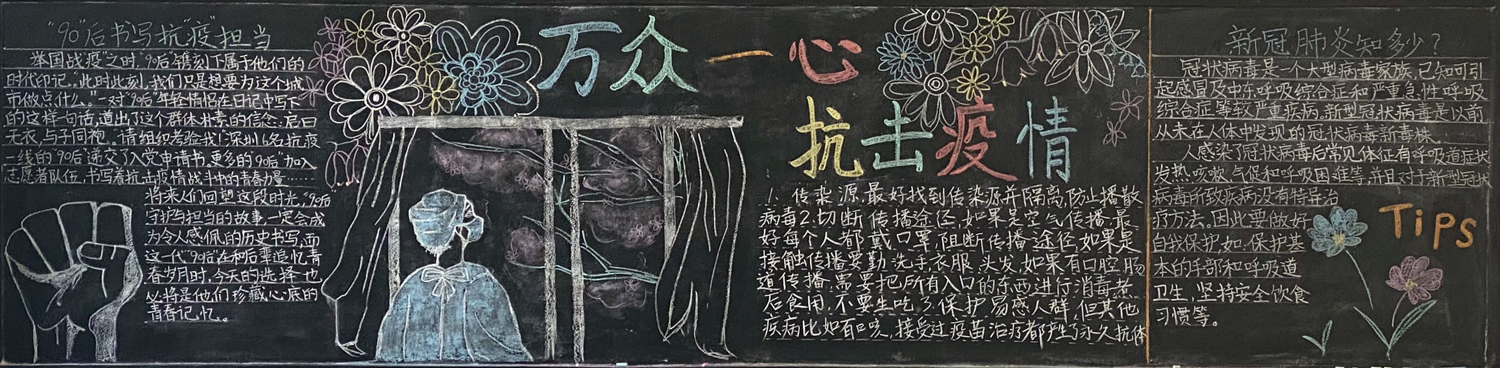 "90"后书写抗"疫"担当
举国战"疫"之时,"90"后镌刻下属于他们的
时代印记。"此时此刻,我们只是想要为这个城
市做点什么。"一对"90后"年轻情侣在日记中写下
的这样一句话,道出了这个群体朴素的信念。岂曰
无衣,与子同袍。"请组织考验我!"深圳6名抗疫
一线的"90后"递交了入党申请书,更多的"90后"加入
志愿者队伍,书写着抗击疫情战斗中的青春力量……
将来人们回望这段时光,"90后"
守护与担当的故事,一定会成
为令人感佩的历史书写,而
这一代"90后"在和后辈追忆青
春岁月时,今天的选择也
必将是他们珍藏心底的
青春记忆。
万众一心
抗击疫情
1.传染源,最好找到传染源并隔离,防止播散
病毒2.切断传播途径,如果是空气传播,最
好每个人都戴口罩,阻断传播途径,如果是
接触传播要勤洗手,衣服,头发,如果有口腔肠
道传播,需要把所有入口的东西进行消毒煮
后食用,不要生吃,3.保护易感人群,但其他
疾病比如百日咳,接受过疫苗治疗都产生了永久抗体
新冠肺炎知多少?
冠状病毒是一个大型病毒家族,已知可引
起感冒及中东呼吸综合症和严重急性呼吸
综合症等较严重疾病。新型冠状病毒是以前
从未在人体中发现的冠状病毒新毒株。
人感染了冠状病毒后常见体征有呼吸道症状
发热,咳嗽,气促和呼吸困难等,并且对于新型冠状
病毒所致疾病没有特异治
疗方法。因此要做好
自我保护,如:保护基
本的手部和呼吸道
卫生,坚持安全饮食
习惯等。
Tips